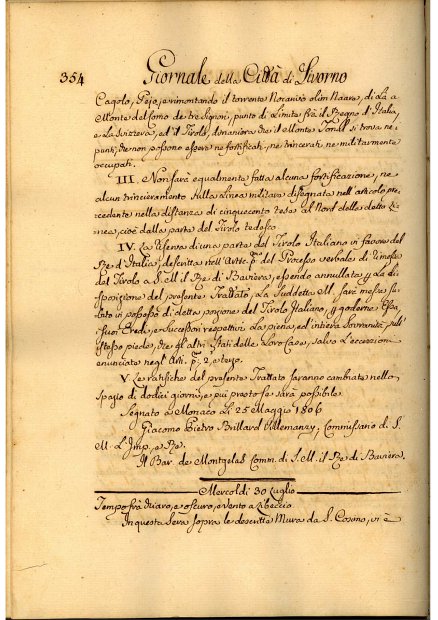 354 Giornale della Città di Livorno
Cagolo, Pejo, e rimontando il torrente Noraniso olim Naare, di là a
Monte del Corno de tre Signori, punto di Limite frà il Regno d'Italia,
e La Svizzera, ed il Tirolo, donaniera che il Monte Tonall si trova ne
punti, che non possono essere ne fortificati, ne trincerati, ne militarmente
occupati.
III. Non sarà egualmente fatta alcuna fortificazione, ne
alcun trincieramento sulla Linea militare disegnata nell'articolo pre,
cedente nella distanza di cinquecento tese al Nord della detta Li,
nea, cioè dalla parte del Tirolo tedesco.
IV. La riserva di una parte del Tirolo Italiano in favore del
Rè d'Italia, descritta nell'Artic. p.º del Processo verbale di rimessa
del Tirolo a S. M. il Rè di Baviera, essendo annullata p la di,
sposizione del presente Trattato, La suddetta M. sarà messa su,
bito in possesso di detta porzione del Tirolo Italiano, p goderne Essa,
suoi Eredi, e Successori respettivi La piena, ed intiera Sovranità, sull'
istesso piede, che gl'altri Stati delle Loro Case, salvo L'eccezioni
enunciate negl'Arti. p.º 2. e terzo.
V. Le ratifiche del presente Trattato saranno cambiate nello
spazio di dodici giorni, e più presto se sarà possibile.
Segnato a Monaco Li 25 Maggio 1806.
Giacomo Pietro Brillard Villemanzy, Commissario di S.
M. L'Imp., e Rè.
Il Bar. de Montgelas Comm. di S. M. il Rè di Baviera.
Mercoldì 30 Luglio
Tempo frà chiaro, e oscuro, e vento a Libeccio
In questa Sera sopra le descritte Mura da S. Cosimo, vi è